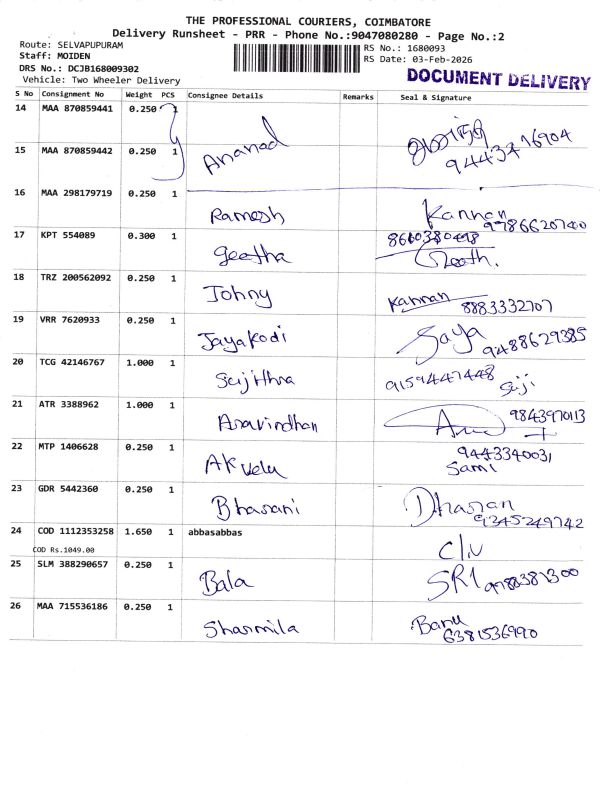 THE PROFESSIONAL COURIERS, COIMBATORE
Delivery Runsheet - PRR - Phone No.:9047080280 - Page No.:2
Route: SELVAPUPURAM
Staff: MOIDEN
DRS No.: DCJB168009302
Vehicle: Two Wheeler Delivery
RS No.: 1680093
RS Date: 03-Feb-2026
DOCUMENT DELIVERY
S No Consignment No Weight PCS Consignee Details Remarks Seal & Signature
14 MAA 870859441 0.250 1
15 MAA 870859442 0.250 1 Ananad
16 MAA 298179719 0.250 1 Ramesh Kannan 9786620740
17 KPT 554089 0.300 1 Geetha 8610380498
18 TRZ 200562092 0.250 1 Johny Kannan 8883332707
19 VRR 7620933 0.250 1 Jayakodi Jaya 9488629385
20 TCG 42146767 1.000 1 Sujithra 9159447448 Suji
21 ATR 3388962 1.000 1 Aravindhan 9843970113
22 MTP 1406628 0.250 1 AK velu 9443340031 Sami
23 GDR 5442360 0.250 1 Bharani Dharan 9345249742
24 COD 1112353258 1.650 1 abbasabbas
COD Rs.1049.00
25 SLM 388290657 0.250 1 Bala SRI
26 MAA 715536186 0.250 1 Sharmila Banu 6381536990